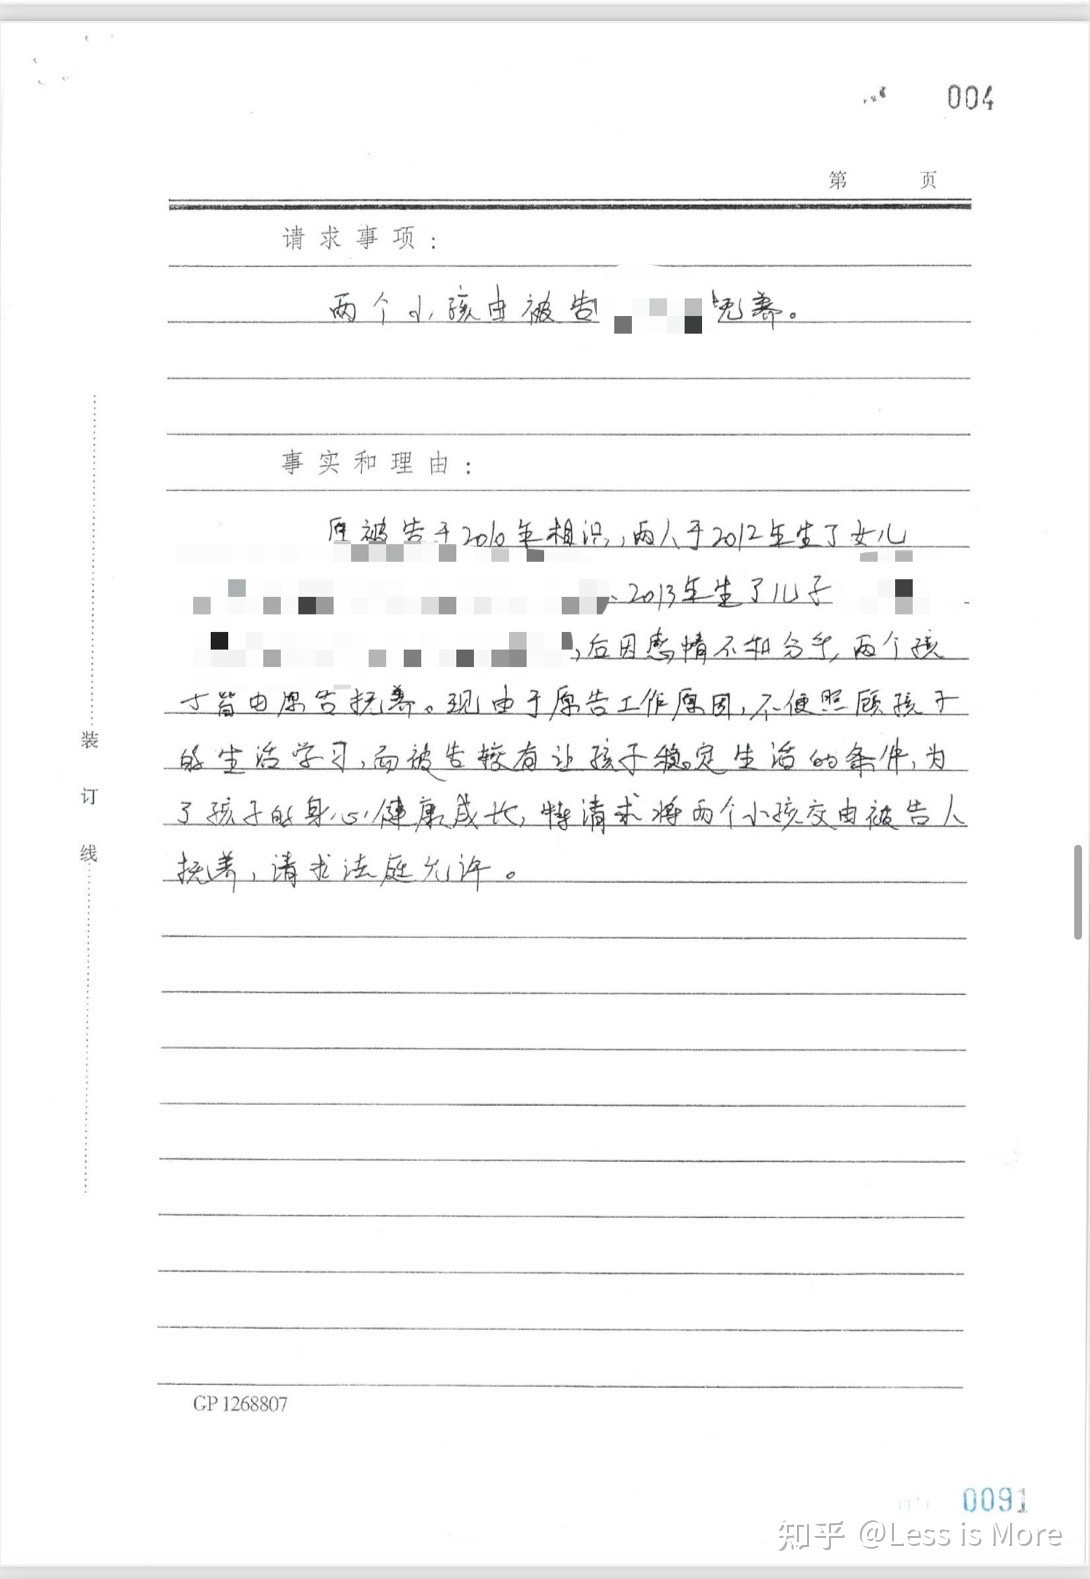 004
第 页
请求事项：
两个小孩由被告 抚养。
事实和理由：
原被告于2010年相识，两人于2012年生了女儿
、2013年生了儿子
，后因感情不和分手，两个孩
子皆由原告抚养。现由于原告工作原因，不便照顾孩子
的生活学习，而被告较有让孩子稳定生活的条件，为
了孩子的身心健康成长，特请求将两个小孩交由被告人
抚养，请求法庭允许。
装
订
线
GP 1268807
0091
知乎 @Less is More